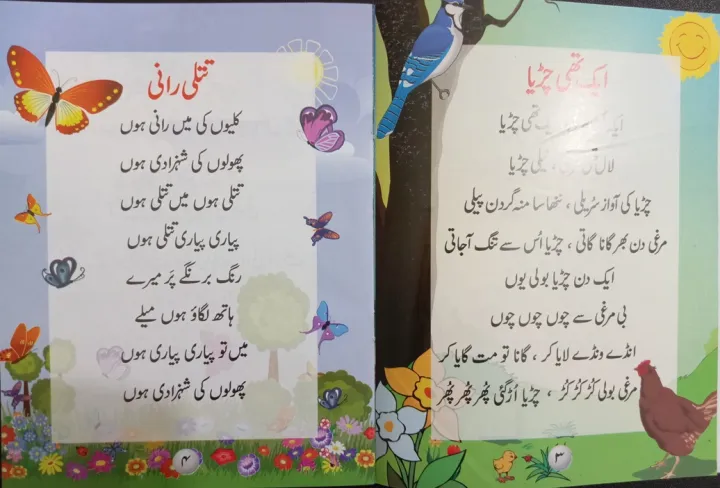 ایک تھی چڑیا
تھی چڑیا
لال چڑیا
چڑیا کی آواز سُریلی ، ننھا سا منہ گردن پیلی
مرغی دن بھر گانا گاتی ، چڑیا اُس سے تنگ آجاتی
ایک دن چڑیا بولی یوں
بی مرغی سے چوں چوں چوں
انڈے ونڈے لایا کر ، گانا تو مت گایا کر
مرغی بولی کُڑ کُڑ کُڑ ، چڑیا اُڑ گئی پُھر پُھر پُھر
۳
تتلی رانی
کلیوں کی میں رانی ہوں
پھولوں کی شہزادی ہوں
تتلی ہوں میں تتلی ہوں
پیاری پیاری تتلی ہوں
رنگ برنگے پَر میرے
ہاتھ لگاؤ ہوں میلے
میں تو پیاری پیاری ہوں
پھولوں کی شہزادی ہوں
۴